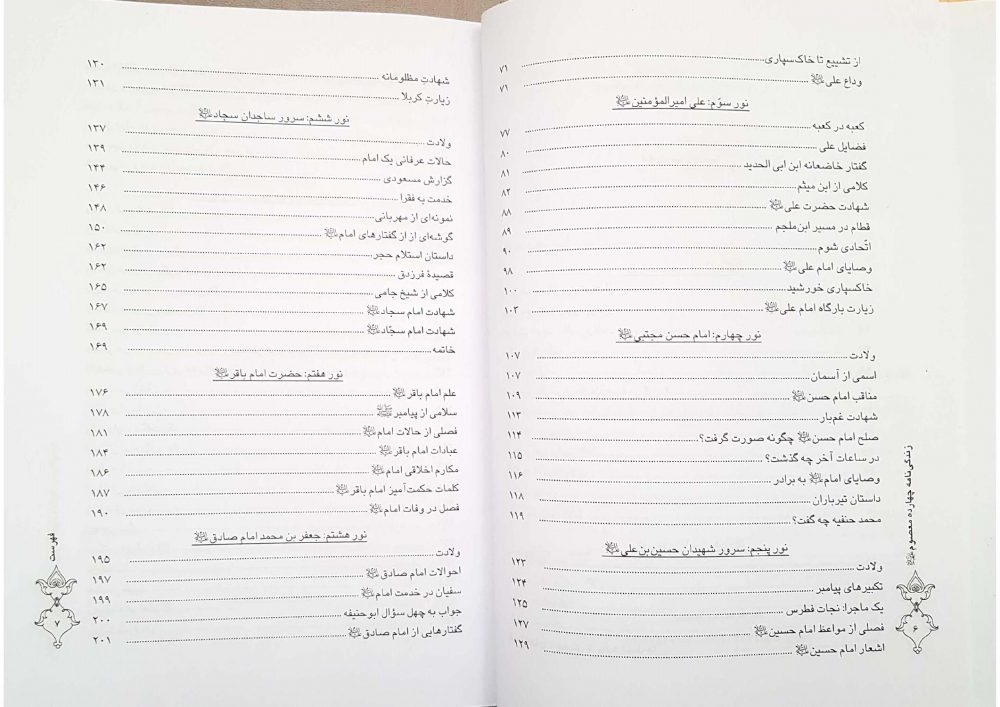 از تشییع تا خاک‌سپاری ۷۱
وداع علی ﷷ ۷۱
نور سوّم: علی امیرالمؤمنین ﷷ
کعبه در کعبه ۷۷
فضایل علی ۸۰
گفتار خاضعانه ابن ابی الحدید ۸۱
کلامی از ابن میثم ۸۲
شهادت حضرت علی ﷷ ۸۸
قطام در مسیر ابن‌ملجم ۸۹
اتّحادی شوم ۹۰
وصایای امام علی ﷷ ۹۸
خاکسپاری خورشید ۱۰۰
زیارت بارگاه امام علی ﷷ ۱۰۳
نور چهارم: امام حسن مجتبی ﷷ
ولادت ۱۰۷
اسمی از آسمان ۱۰۷
مناقب امام حسن ﷷ ۱۰۹
شهادت غم‌بار ۱۱۳
صلح امام حسن ﷷ چگونه صورت گرفت؟ ۱۱۴
در ساعات آخر چه گذشت؟ ۱۱۵
وصایای امام ﷷ به برادر ۱۱۶
داستان تیرباران ۱۱۸
محمد حنفیه چه گفت؟ ۱۱۹
نور پنجم: سرور شهیدان حسین‌بن‌علی ﷷ
ولادت ۱۲۳
تکبیرهای پیامبر ۱۲۴
یک ماجرا: نجات فطرس ۱۲۵
فصلی از مواعظ امام حسین ﷷ ۱۲۷
اشعار امام حسین ﷷ ۱۲۹
زندگی‌نامه چهارده معصوم ﷷ
۶
شهادتِ مظلومانه ۱۳۰
زیارتِ کربلا ۱۳۱
نور ششم: سرور ساجدان سجاد ﷷ
ولادت ۱۳۷
حالات عرفانی یک امام ۱۳۹
گزارش مسعودی ۱۴۴
خدمت به فقرا ۱۴۶
نمونه‌ای از مهربانی ۱۴۸
گوشه‌ای از از گفتارهای امام ﷷ ۱۵۰
داستان استلام حجر ۱۶۲
قصیدهٔ فرزدق ۱۶۲
کلامی از شیخ جامی ۱۶۵
شهادت امام سجاد ﷷ ۱۶۷
شهادت امام سجّاد ﷷ ۱۶۹
خاتمه ۱۶۹
نور هفتم: حضرت امام باقر ﷷ
علم امام باقر ﷷ ۱۷۶
سلامی از پیامبر ﷺ ۱۷۸
فصلی از حالات امام ﷷ ۱۸۱
عبادات امام باقر ﷷ ۱۸۴
مکارم اخلاقی امام ﷷ ۱۸۶
کلمات حکمت‌آمیز امام باقر ﷷ ۱۸۷
فصل در وفات امام ﷷ ۱۹۰
نور هشتم: جعفر بن محمد امام صادق ﷷ
ولادت ۱۹۵
احوالات امام صادق ﷷ ۱۹۷
سفیان در خدمت امام ﷷ ۱۹۹
جواب به چهل سؤال ابوحنیفه ۲۰۰
گفتارهایی از امام صادق ﷷ ۲۰۱
فهرست
۷